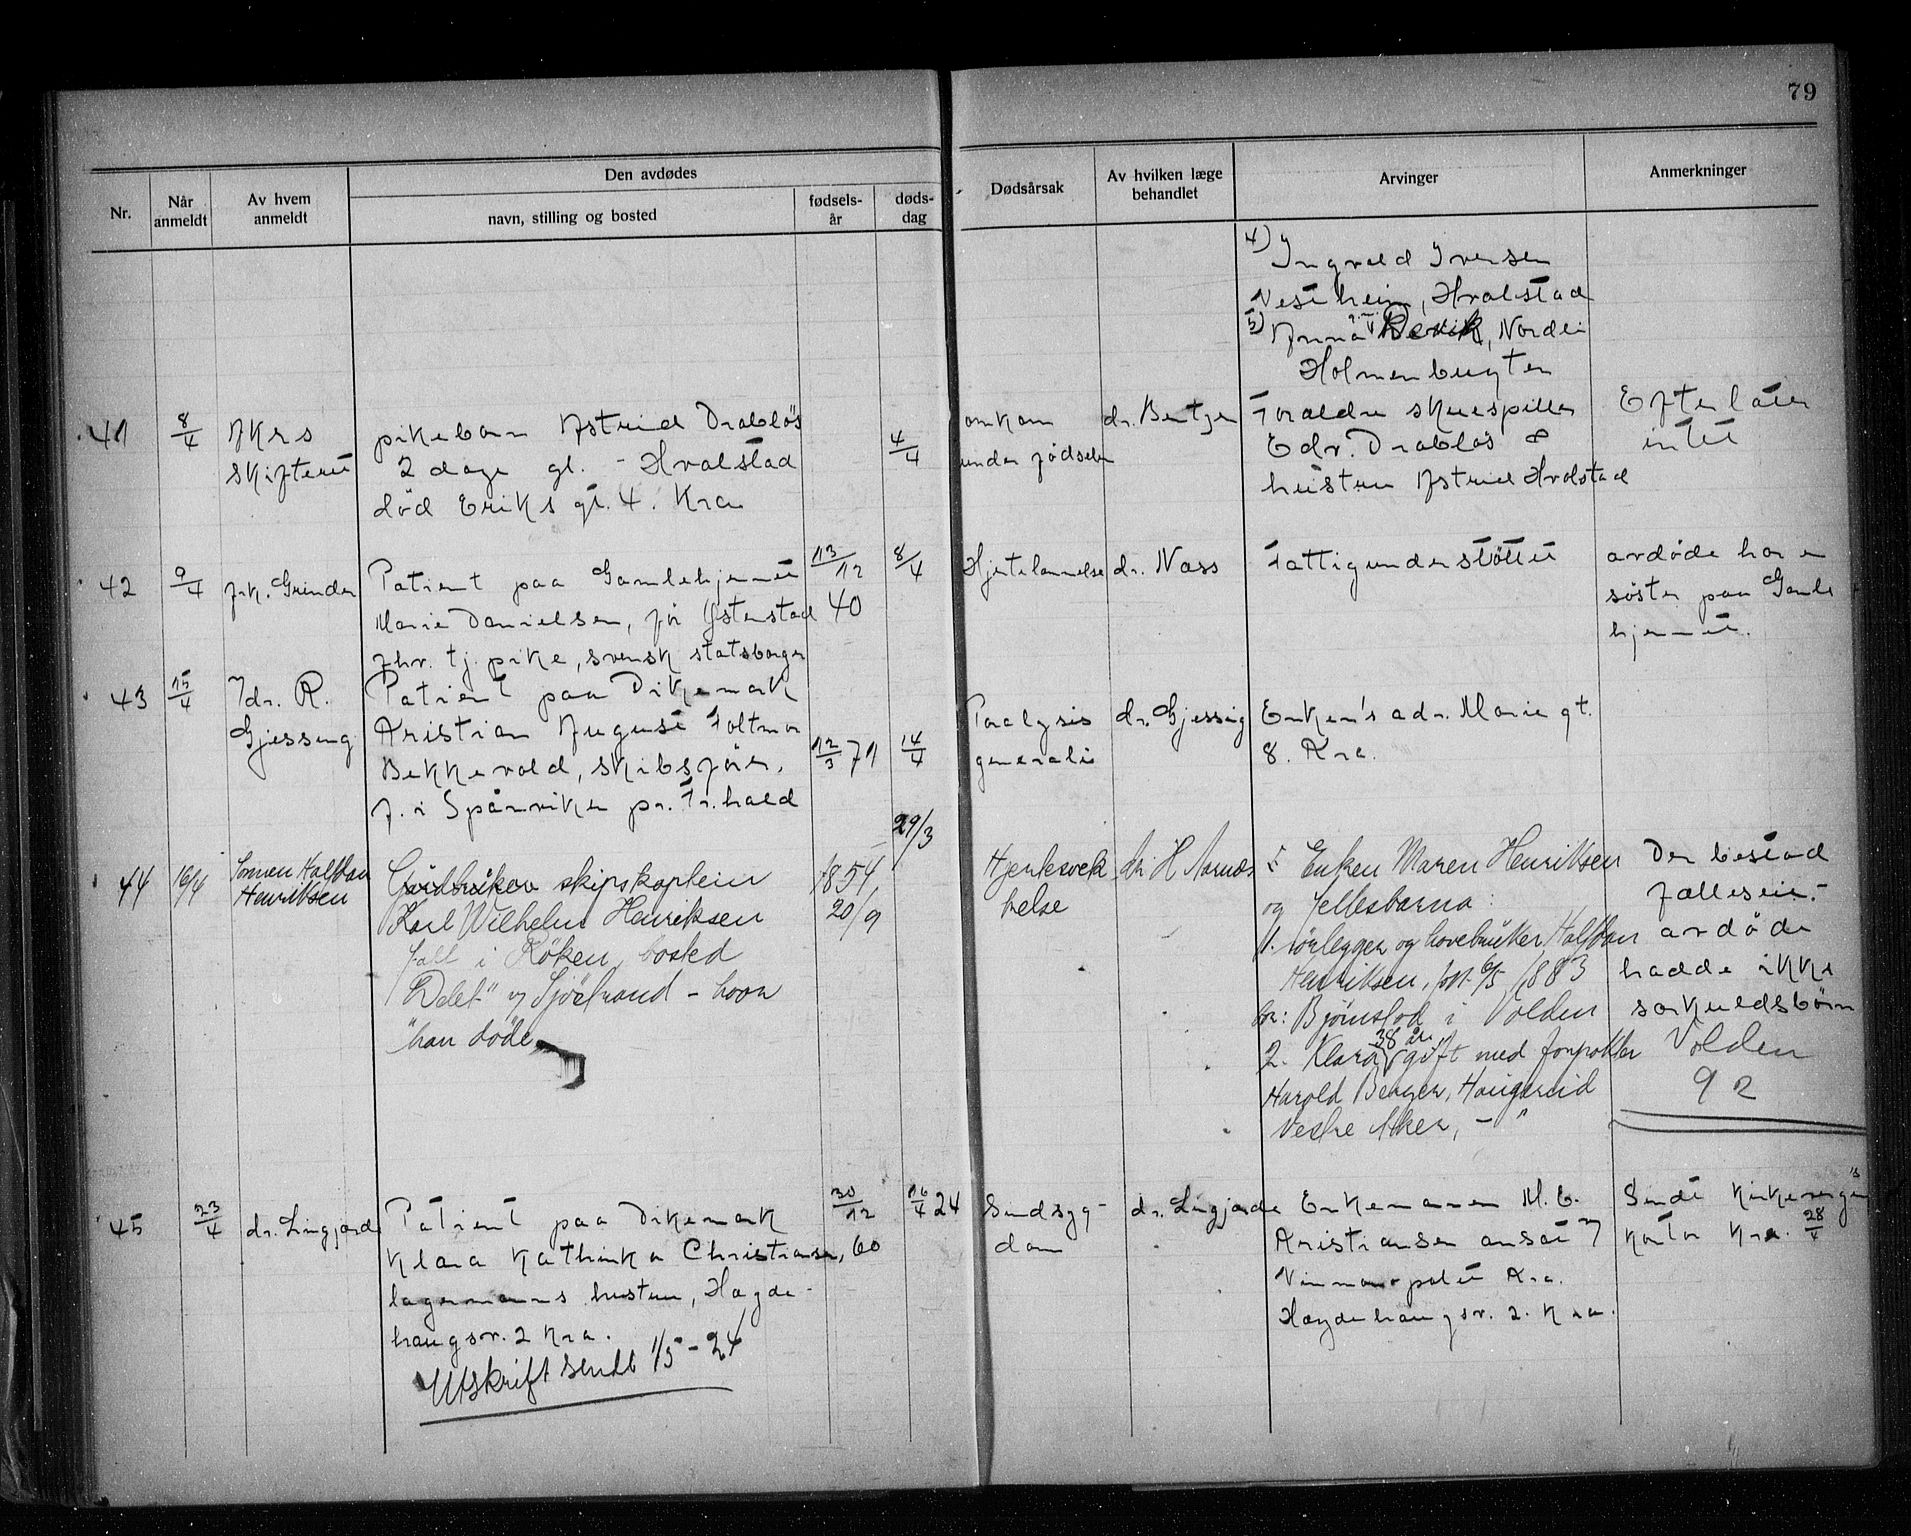 79
Nr.
Når anmeldt
Av hvem anmeldt
Den avdødes
navn, stilling og bosted
fødsels-år
døds-dag
Dødsårsak
Av hvilken læge behandlet
Arvinger
Anmerkninger
4) Ingvald Iversen
Vestheim, Hvalstad
5) Anna Revik, Nordli
Holmenbugten
41
8/4
Akers
skifteret
pikebarn Astrid Drabløs
2 dage gl. - Hvalstad
død Eriks gt. 4. Kra
4/4
omkom
under fødselen
dr. Bentzen
Foraldre skuespiller
Edv. Drabløs &
hustru Astrid Hvalstad
Efterlater
intet
42
9/4
frk. Grinder
Patient paa Gamlehjemmet
Marie Danielsen, for Østenstad
fhv. tj. pike, svensk statsborger
13/12
40
8/4
Hjertelammelse
dr. Næss
Fattigunderstøttet
avdøde har en
søster paa Gamle
hjemmet.
43
15/4
dr. R.
Gjessing
Patient paa Dikemark
Kristian August Foltmar
Bekkevold, skibsfører,
f. i Spånviken pr. Fr.hald
12/3 71
14/4
Paralysis
generalis
dr. Gjessing
Enken's adr. Marie gt.
8. Kra.
44
16/4
Sønnen Halfdan
Henriksen
Gårdbruker skipskaptein
Karl Wilhelm Henriksen
født i Røken, bosted
"Delet" v/ Sjøstrand - hvor
han døde.
1854
20/9
29/3
Hjertesvek
kelse
dr. H Aarnes
Enken Maren Henriksen
og fellesbarna:
1. rørlegger og havebruker Halfdan
Henriksen, født 6/5 1883
bor: Bjørnstad i Volden
2. Klara 38 år, gift med forpakter
Harold Berger, Haugerud
Vestre Aker, - "
Der bestod
fælleseie.
avdøde
hadde ikke
særkuldsbørn
Volden
92
45
23/4
dr. Lingjærde
Patient paa Dikemark
Klara Kathinka Christiansen,
lagermanns hustru, Hægde-
haugsv. 2 Kra.
Utskrift sendt 1/5 - 24
30/12
60
16/4 24
Sindssyg-
dom
dr. Lingjærde
Enkemannen M. C.
Kristiansen ansat v/
Vinmonopolet Kra.
Hægdehaugsv. 2. Kra.
Sendt kirkevergens
kontor Kra. 28/4